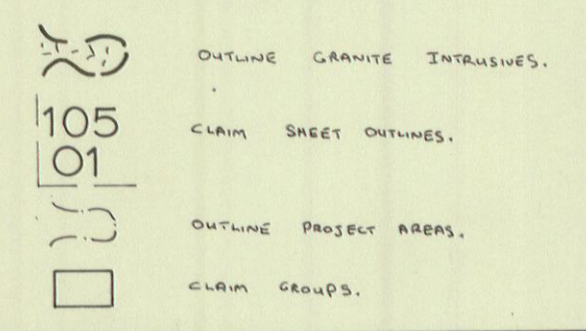 OUTLINE GRANITE INTRUSIVES.
105
CLAIM SHEET OUTLINES.
01
OUTLINE PROJECT AREAS.
CLAIM GROUPS.